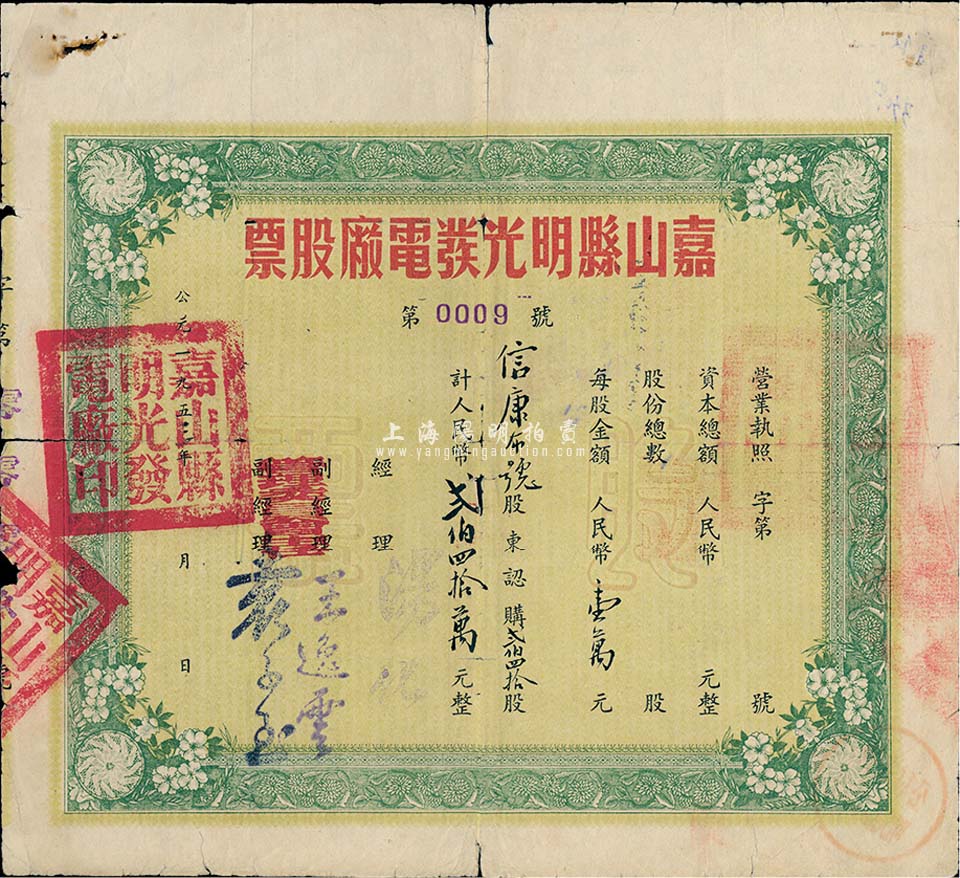 嘉山縣明光發電廠股票
第 0009 號
營業執照 字第 號
資本總額 人民幣 元整
股份總數 股
每股金額 人民幣 壹萬 元
信康布號 股東認購 弍佰四拾 股
計人民幣 弍佰四拾萬 元整
經理
副經理 王逸雲
副經理
公元一九五三年 月 日
嘉山縣
明光發
電廠印
嘉山
上海陽明拍賣
www.yangmingauction.com